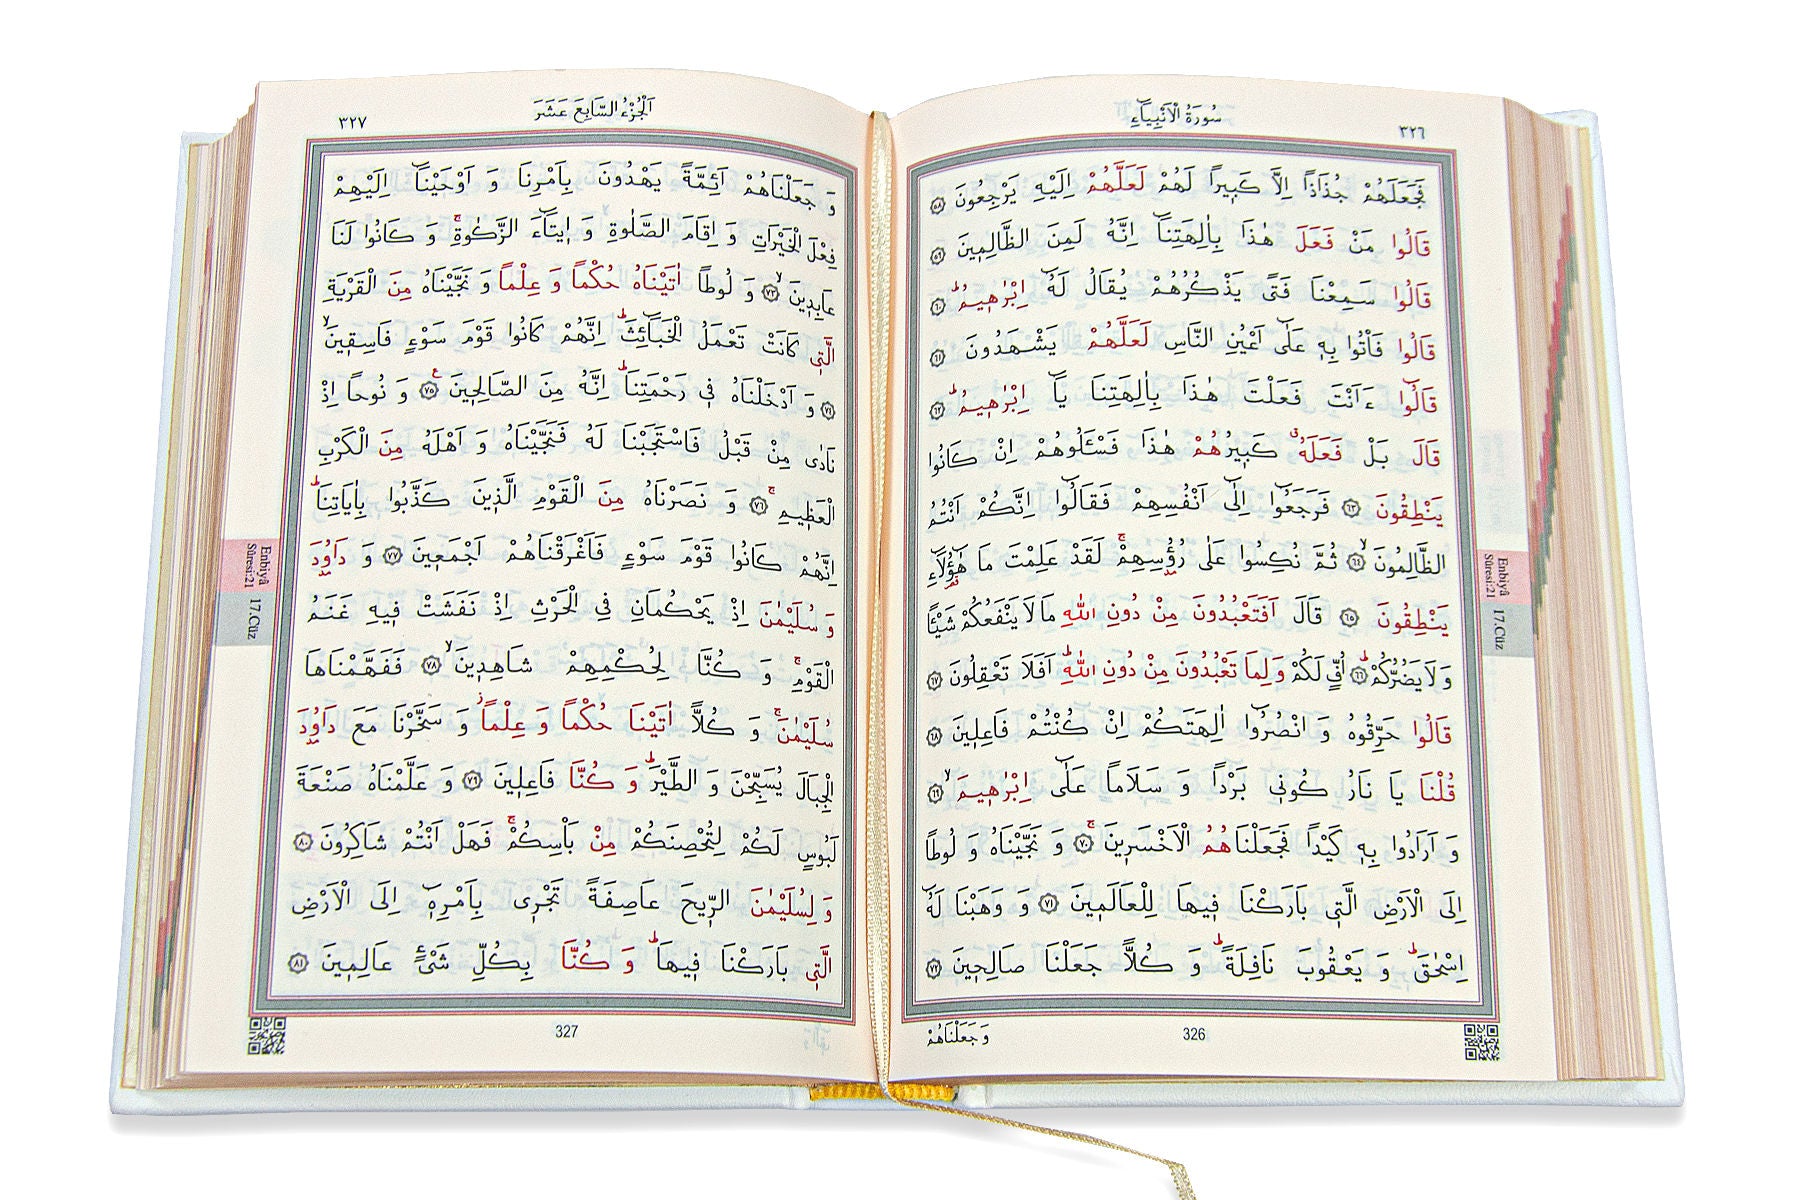 سُورَةُ الْاَنْبِيَاءِ
٣٢٦
فَجَعَلَهُمْ جُذَاذًا اِلَّا كَبِيرًا لَهُمْ لَعَلَّهُمْ اِلَيْهِ يَرْجِعُونَ ﴿٥٨﴾
قَالُوا مَنْ فَعَلَ هٰذَا بِاٰلِهَتِنَٓا اِنَّهُ لَمِنَ الظَّالِمِينَ ﴿٥٩﴾
قَالُوا سَمِعْنَا فَتًى يَذْكُرُهُمْ يُقَالُ لَهُٓ اِبْرٰهِيمُۜ ﴿٦٠﴾
قَالُوا فَأْتُوا بِهِ عَلٰٓى اَعْيُنِ النَّاسِ لَعَلَّهُمْ يَشْهَدُونَ ﴿٦١﴾
قَالُٓوا ءَاَنْتَ فَعَلْتَ هٰذَا بِاٰلِهَتِنَا يَٓا اِبْرٰهِيمُۜ ﴿٦٢﴾
قَالَ بَلْ فَعَلَهُۗ كَبِيرُهُمْ هٰذَا فَسْـَٔلُوهُمْ اِنْ كَانُوا
يَنْطِقُونَ ﴿٦٣﴾ فَرَجَعُٓوا اِلٰٓى اَنْفُسِهِمْ فَقَالُٓوا اِنَّكُمْ اَنْتُمُ
الظَّالِمُونَۙ ﴿٦٤﴾ ثُمَّ نُكِسُوا عَلٰى رُؤُ۫سِهِمْۚ لَقَدْ عَلِمْتَ مَا هٰٓؤُ۬لَٓاءِ
يَنْطِقُونَ ﴿٦٥﴾ قَالَ اَفَتَعْبُدُونَ مِنْ دُونِ اللّٰهِ مَا لَا يَنْفَعُكُمْ شَيْـًٔا
وَلَا يَضُرُّكُمْۜ ﴿٦٦﴾ اُفٍّ لَكُمْ وَلِمَا تَعْبُدُونَ مِنْ دُونِ اللّٰهِۜ اَفَلَا تَعْقِلُونَ ﴿٦٧﴾
قَالُوا حَرِّقُوهُ وَ انْصُرُٓوا اٰلِهَتَكُمْ اِنْ كُنْتُمْ فَاعِلِينَ ﴿٦٨﴾
قُلْنَا يَا نَارُ كُونِي بَرْدًا وَ سَلَامًا عَلٰٓى اِبْرٰهِيمَۙ ﴿٦٩﴾
وَ اَرَادُوا بِهِ كَيْدًا فَجَعَلْنَاهُمُ الْاَخْسَرِينَۚ ﴿٧٠﴾ وَ نَجَّيْنَاهُ وَ لُوطًا
اِلَى الْاَرْضِ الَّتِي بَارَكْنَا فِيهَا لِلْعَالَمِينَ ﴿٧١﴾ وَ وَهَبْنَا لَهُٓ
اِسْحٰقَۜ وَ يَعْقُوبَ نَافِلَةًۜ وَ كُلًّا جَعَلْنَا صَالِحِينَ ﴿٧٢﴾
326
وَ جَعَلْنَاهُمْ
Enbiyâ
Sûresi:21
17.Cüz
اَلْجُزْءُ السَّابِعَ عَشَرَ
٣٢٧
وَ جَعَلْنَاهُمْ اَئِمَّةً يَهْدُونَ بِاَمْرِنَا وَ اَوْحَيْنَٓا اِلَيْهِمْ
فِعْلَ الْخَيْرَاتِ وَ اِقَامَ الصَّلٰوةِ وَ اِيتَٓاءَ الزَّكٰوةِۚ وَ كَانُوا لَنَا
عَابِدِينَۙ ﴿٧٣﴾ وَ لُوطًا اٰتَيْنَاهُ حُكْمًا وَ عِلْمًا وَ نَجَّيْنَاهُ مِنَ الْقَرْيَةِ
الَّتِي كَانَتْ تَعْمَلُ الْخَبَٓائِثَۜ اِنَّهُمْ كَانُوا قَوْمَ سَوْءٍ فَاسِقِينَۙ
﴿٧٤﴾ وَ اَدْخَلْنَاهُ فِي رَحْمَتِنَاۜ اِنَّهُ مِنَ الصَّالِحِينَ ﴿٧٥﴾ وَ نُوحًا اِذْ
نَادٰى مِنْ قَبْلُ فَاسْتَجَبْنَا لَهُ فَنَجَّيْنَاهُ وَ اَهْلَهُ مِنَ الْكَرْبِ
الْعَظِيمِۚ ﴿٧٦﴾ وَ نَصَرْنَاهُ مِنَ الْقَوْمِ الَّذِينَ كَذَّبُوا بِاٰيَاتِنَاۜ
اِنَّهُمْ كَانُوا قَوْمَ سَوْءٍ فَاَغْرَقْنَاهُمْ اَجْمَعِينَ ﴿٧٧﴾ وَ دَاوُ۫دَ
وَ سُلَيْمٰنَ اِذْ يَحْكُمَانِ فِي الْحَرْثِ اِذْ نَفَشَتْ فِيهِ غَنَمُ
الْقَوْمِۚ وَ كُنَّا لِحُكْمِهِمْ شَاهِدِينَۙ ﴿٧٨﴾ فَفَهَّمْنَاهَا
سُلَيْمٰنَۚ وَ كُلًّا اٰتَيْنَا حُكْمًا وَ عِلْمًاۘ وَ سَخَّرْنَا مَعَ دَاوُ۫دَ
الْجِبَالَ يُسَبِّحْنَ وَ الطَّيْرَۜ وَ كُنَّا فَاعِلِينَ ﴿٧٩﴾ وَ عَلَّمْنَاهُ صَنْعَةَ
لَبُوسٍ لَكُمْ لِتُحْصِنَكُمْ مِنْ بَأْسِكُمْۚ فَهَلْ اَنْتُمْ شَاكِرُونَ ﴿٨٠﴾
وَ لِسُلَيْمٰنَ الرِّيحَ عَاصِفَةً تَجْرِي بِاَمْرِهِٓ اِلَى الْاَرْضِ
الَّتِي بَارَكْنَا فِيهَاۜ وَ كُنَّا بِكُلِّ شَيْءٍ عَالِمِينَ ﴿٨١﴾
327
Enbiyâ
Sûresi:21
17.Cüz